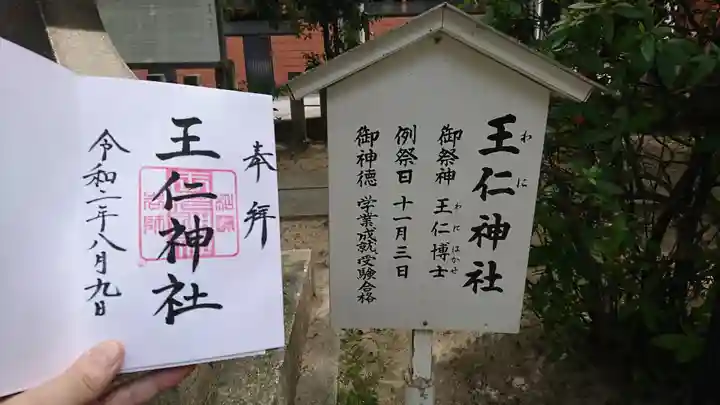 奉拝
王仁神社
令和二年八月九日
王仁神社
わに
御祭神 王仁博士
わにはかせ
例祭日 十一月三日
御神徳 学業成就受験合格